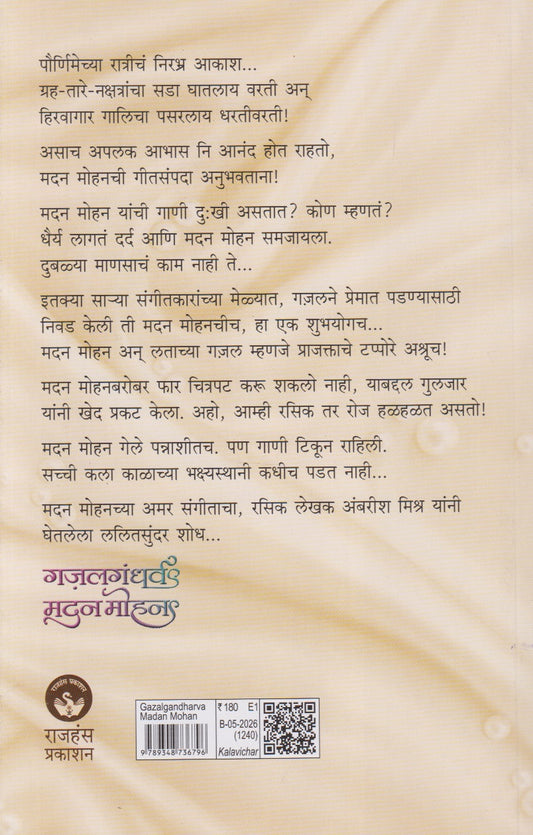 पौर्णिमेच्या रात्रीचं निरभ्र आकाश...
ग्रह-तारे-नक्षत्रांचा सडा घातलाय वरती अन्
हिरवागार गालिचा पसरलाय धरतीवरती!
असाच अपलक आभास नि आनंद होत राहतो,
मदन मोहनची गीतसंपदा अनुभवताना!
मदन मोहन यांची गाणी दुःखी असतात? कोण म्हणतं?
धैर्य लागतं दर्द आणि मदन मोहन समजायला.
दुबळ्या माणसाचं काम नाही ते...
इतक्या साऱ्या संगीतकारांच्या मेळ्यात, गज़लने प्रेमात पडण्यासाठी
निवड केली ती मदन मोहनचीच, हा एक शुभयोगच...
मदन मोहन अन् लताच्या गज़ल म्हणजे प्राजक्ताचे टप्पोरे अश्रूच!
मदन मोहनबरोबर फार चित्रपट करू शकलो नाही, याबद्दल गुलजार
यांनी खेद प्रकट केला. अहो, आम्ही रसिक तर रोज हळहळत असतो!
मदन मोहन गेले पन्नाशीतच. पण गाणी टिकून राहिली.
सच्ची कला काळाच्या भक्ष्यस्थानी कधीच पडत नाही...
मदन मोहनच्या अमर संगीताचा, रसिक लेखक अंबरीश मिश्र यांनी
घेतलेला ललितसुंदर शोध...
गज़लगंधर्व
मदन मोहन
राजहंस प्रकाशन
राजहंस
प्रकाशन
Gazalgandharva
Madan Mohan
9 789348 736796
₹ 180 E1
B-05-2026
(1240)
Kalavichar